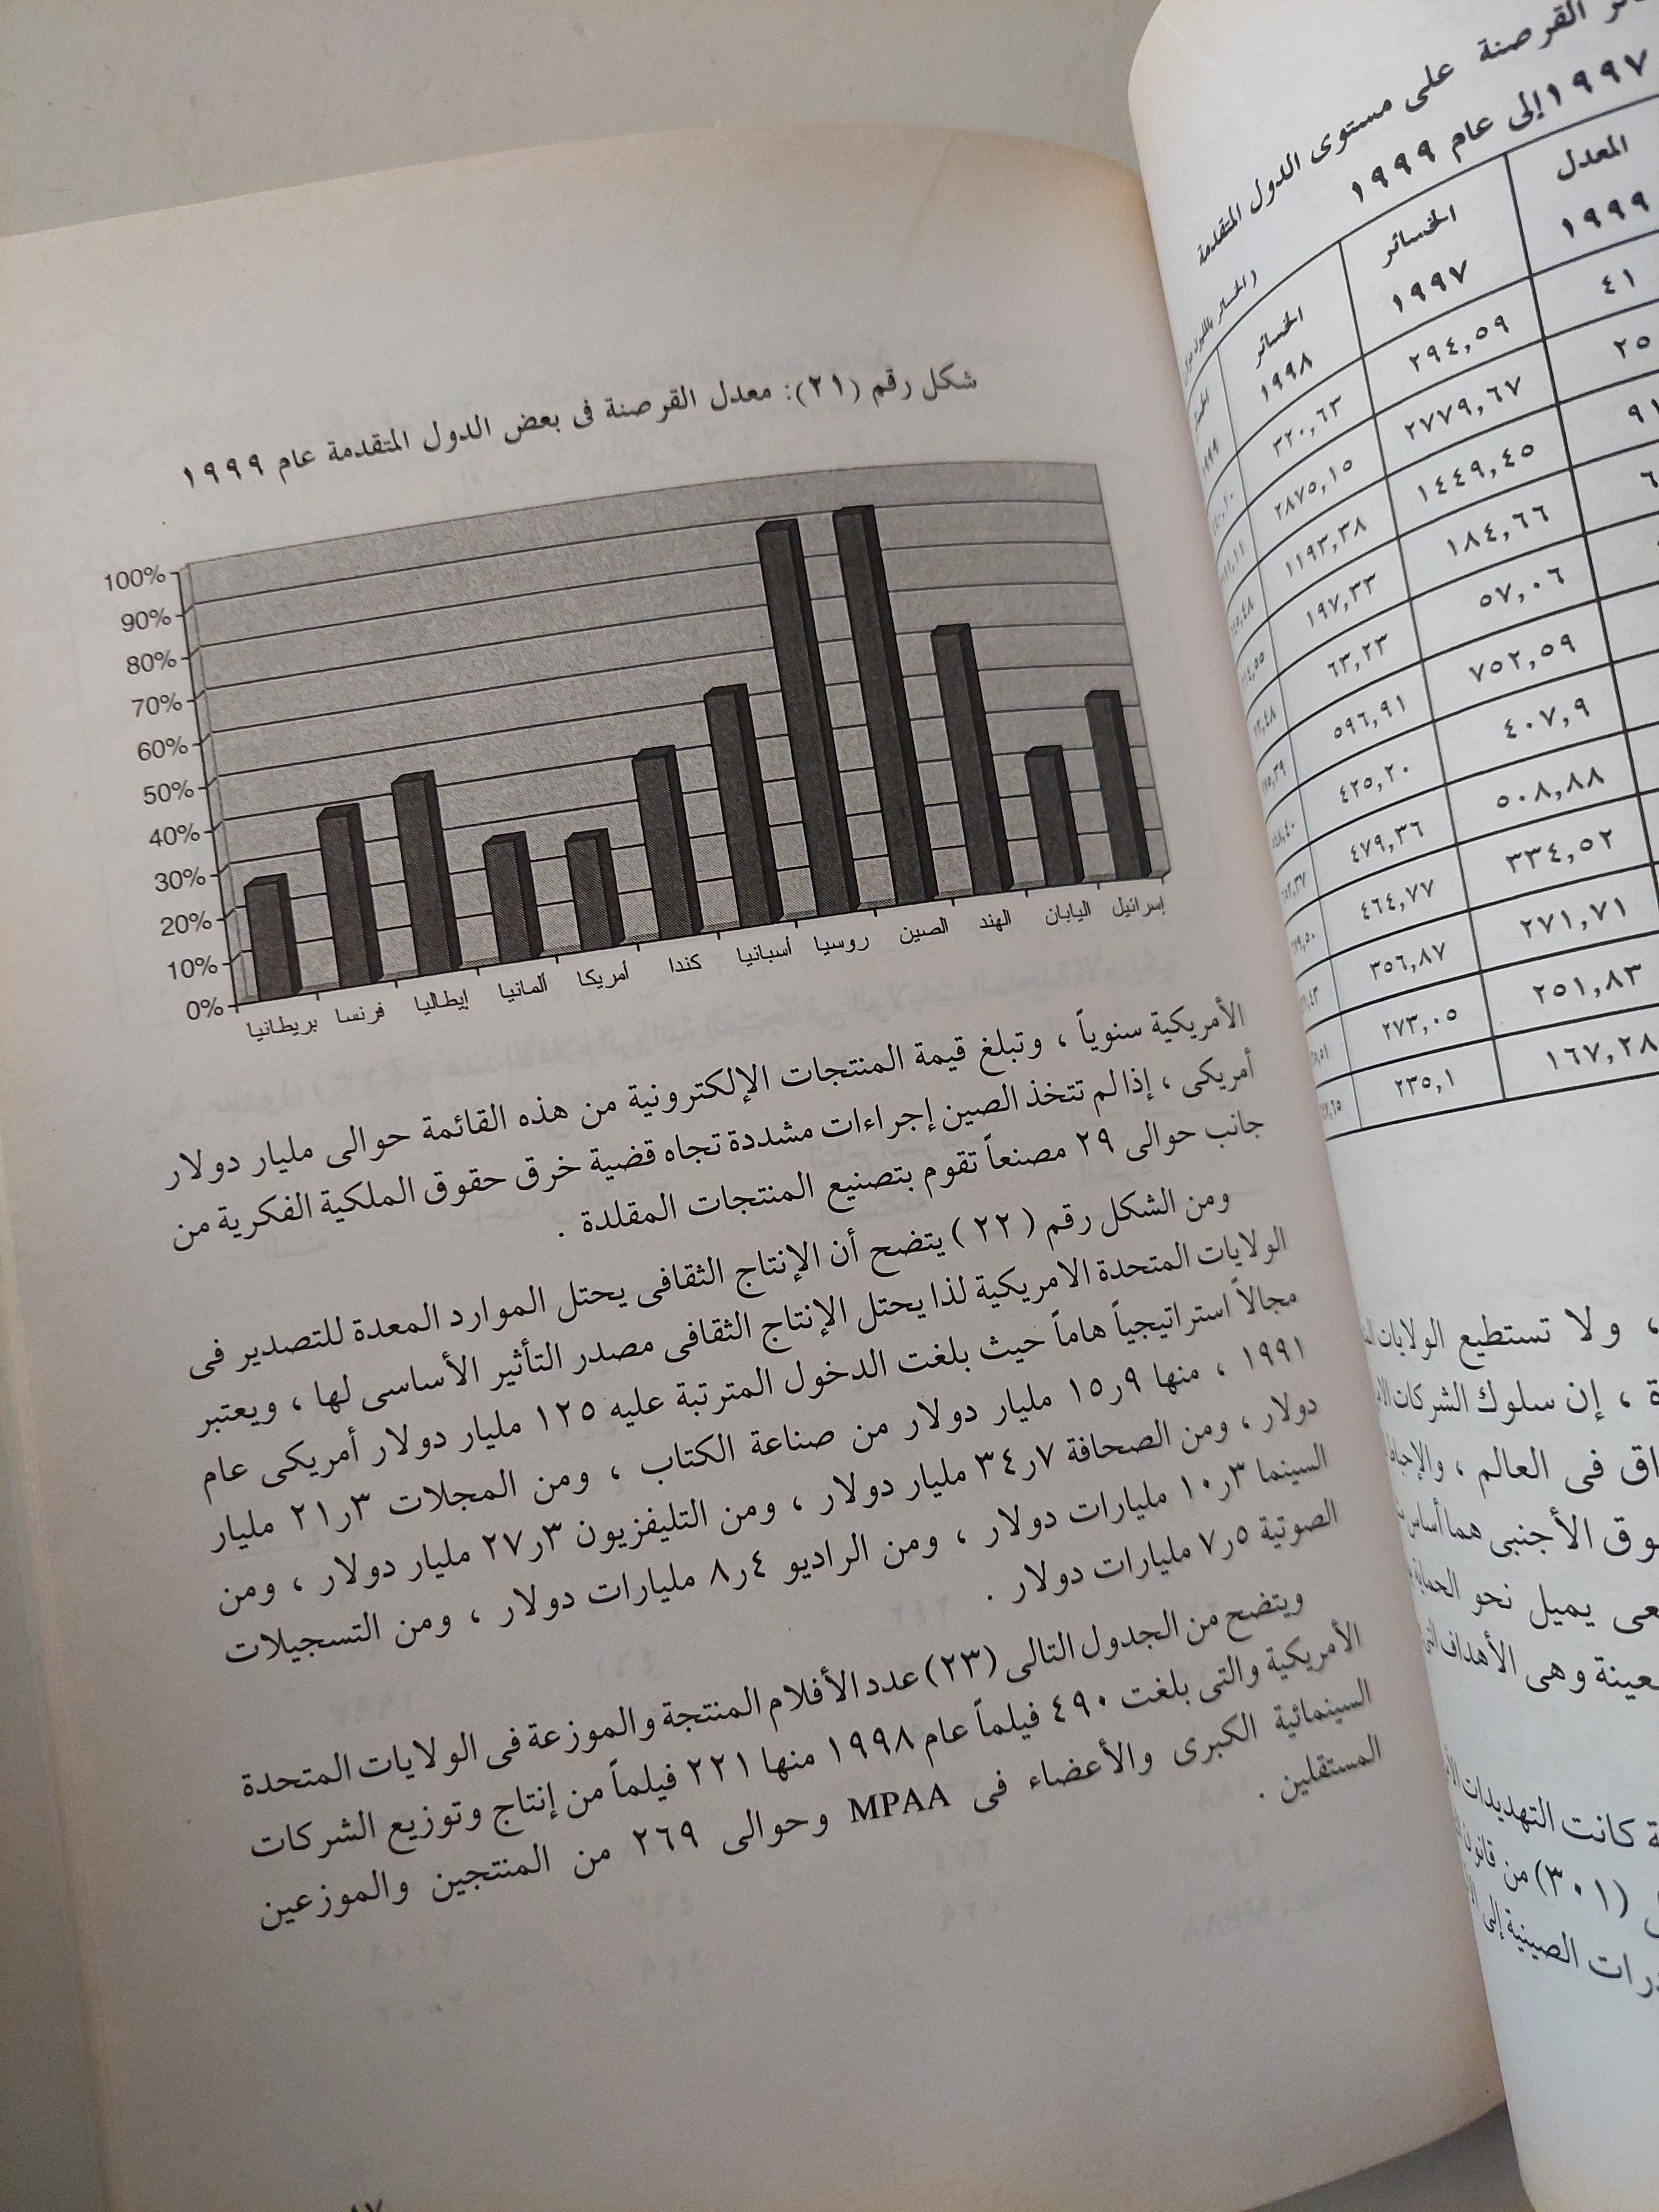 القرصنة على مستوى الدول المتقدمة
١٩٩٧ إلى عام ١٩٩٩
المعدل
١٩٩٩
الخسائر
١٩٩٧
الخسائر
١٩٩٨
١٩٩٩
٤١ ٢٩٤,٥٩ ٣٢٠,٦٣
٢٥ ٢٧٧٩,٦٧ ٢٨٧٥,١٥
١٤٤٩,٤٥ ١١٩٣,٣٨
١٨٤,٦٦ ١٩٧,٣٣
٥٧,٠٦ ٦٣,٢٣
٧٥٢,٥٩ ٥٩٦,٩١
٤٠٧,٩ ٤٢٥,٢٠
٥٠٨,٨٨ ٤٧٩,٣٦
٣٣٤,٥٢ ٤٦٤,٧٧
٢٧١,٧١ ٣٥٦,٨٧
٢٥١,٨٣ ٢٧٣,٠٥
١٦٧,٢٨ ٢٣٥,١
، ولا تستطيع الولايات
، إن سلوك الشركات
فى العالم ، والإجبار
الأجنبى هما أساس
يميل نحو الحماية
وهى الأهداف
كانت التهديدات
(٣٠١) من قانون
الصينية إلى
شكل رقم (٢١): معدل القرصنة فى بعض الدول المتقدمة عام ١٩٩٩
100%
90%
80%
70%
60%
50%
40%
30%
20%
10%
0%
بريطانيا فرنسا إيطاليا ألمانيا أمريكا كندا أسبانيا روسيا الصين الهند اليابان إسرائيل
الأمريكية سنوياً ، وتبلغ قيمة المنتجات الإلكترونية من هذه القائمة حوالى مليار دولار
أمريكى ، إذا لم تتخذ الصين إجراءات مشددة تجاه قضية خرق حقوق الملكية الفكرية من
جانب حوالى ٢٩ مصنعاً تقوم بتصنيع المنتجات المقلدة .
ومن الشكل رقم (٢٢) يتضح أن الإنتاج الثقافى يحتل الموارد المعدة للتصدير فى
الولايات المتحدة الامريكية لذا يحتل الإنتاج الثقافى مصدر التأثير الأساسى لها ، ويعتبر
مجالاً استراتيجياً هاماً حيث بلغت الدخول المترتبة عليه ١٢٥ مليار دولار أمريكى عام
١٩٩١ ، منها ٩ر١٥ مليار دولار من صناعة الكتاب ، ومن المجلات ٣ر٢١ مليار
دولار ، ومن الصحافة ٧ر٣٤ مليار دولار ، ومن التليفزيون ٣ر٢٧ مليار دولار ، ومن
السينما ٣ر١٠ مليارات دولار ، ومن الراديو ٤ر٨ مليارات دولار ، ومن التسجيلات
الصوتية ٥ر٧ مليارات دولار .
ويتضح من الجدول التالى (٢٣) عدد الأفلام المنتجة والموزعة فى الولايات المتحدة
الأمريكية والتى بلغت ٤٩٠ فيلماً عام ١٩٩٨ منها ٢٢١ فيلماً من إنتاج وتوزيع الشركات
السينمائية الكبرى والأعضاء فى MPAA وحوالى ٢٦٩ من المنتجين والموزعين
المستقلين .